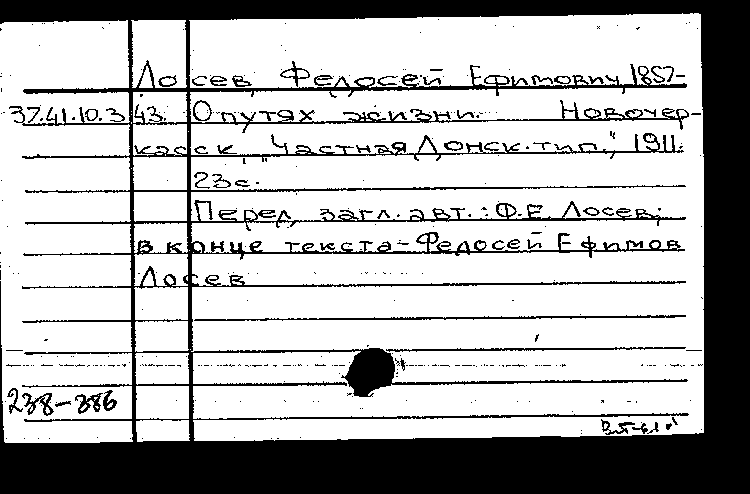 Лосев, Федосей Ефимович, 1857-
37.41.10.3 43. О путях жизни. Новочер-
касск, "Частная Донск. тип.", 1911.
23с.
Перед загл. авт.: Ф.Е. Лосев;
в конце текста - Федосей Ефимов
Лосев
238-386